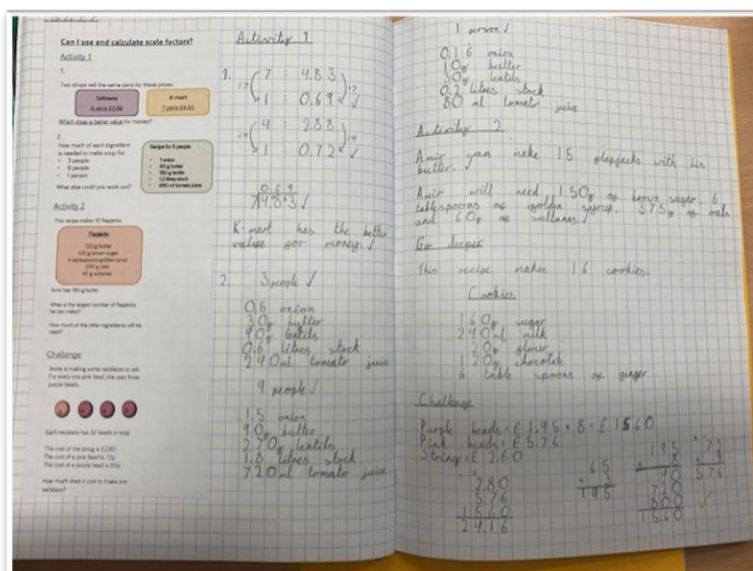 Can I use and calculate scale factors?
Activity 1
1.
Two shops sell the same pens for these prices.
Safeway
4 pens £2.88
K-mart
7 pens £4.83
Which shop is better value for money?
2.
How much of each ingredient
is needed to make soup for:
• 3 people
• 9 people
• 1 person
What else could you work out?
Recipe for 6 people
• 1 onion
• 60 g butter
• 180 g lentils
• 1.2 litres stock
• 480 ml tomato juice
Activity 2
This recipe makes 10 flapjacks
Flapjacks
120 g butter
100 g brown sugar
4 tablespoons golden syrup
250 g oats
40 g sultanas
Amir has 180 g butter.
What is the largest number of flapjacks
he can make?
How much of the other ingredients will he
need?
Challenge
Annie is making some necklaces to sell.
For every one pink bead, she uses three
purple beads.
Each necklace has 32 beads in total.
The cost of the string is £2.80
The cost of a pink bead is 72p.
The cost of a purple bead is 65p.
How much does it cost to make one
necklace?
Activity 1
1.
7 : 4.83
÷7 ÷7
1 : 0.69 ✓
4 : 2.88
÷4 ÷4
1 : 0.72 ✓
0.69
7 4.83 ✓
K-mart has the better
value for money. ✓
2. 3 people ✓
0.5 onion
30g butter
90g lentils
0.6 litres stock
240ml tomato juice
9 people ✓
1.5 onion
90g butter
270g lentils
1.8 litres stock
720ml tomato juice
1 person ✓
0.16 onion
10g butter
30g lentils
0.2 litres stock
80 ml tomato juice
Activity 2
Amir can make 15 flapjacks with his
butter.
Amir will need 150g of brown sugar, 6
tablespoons of golden syrup, 375g of oats
and 60g of sultanas.
Go deeper
This recipe makes 16 cookies.
Cookies
160g sugar
240ml milk
20g flour
120g chocolate
6 table spoons of ginger
Challenge
Purple beads = £1.95 × 8 = £15.60
Pink beads = £5.76
String = £2.80
2.80
5.76
15.60
24.16
65
× 3
195
195
× 8
40
720
800
15.60
72
× 8
576